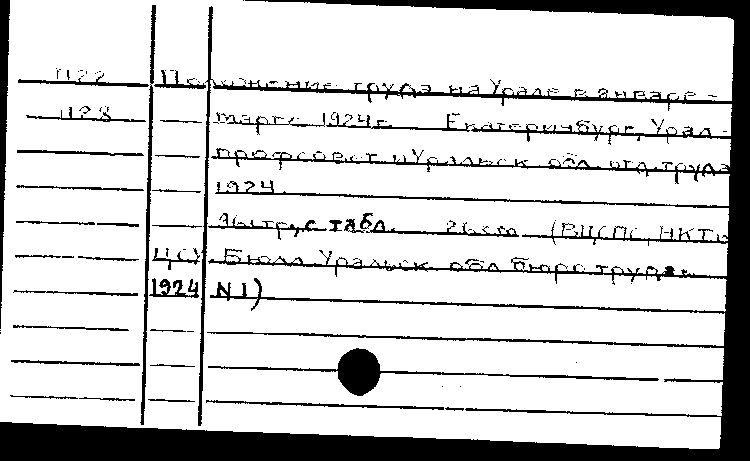 1122 Положение труда на Урале в январе-
1128 марте 1924г. Екатеринбург, Урал-
профсовет и Уральск обл. отд. труда
1924.
96 стр., с табл. 26 см (ВЦСПС, НКТ и
ЦСУ. Бюлл Уральск обл бюро труда
1924 N1)